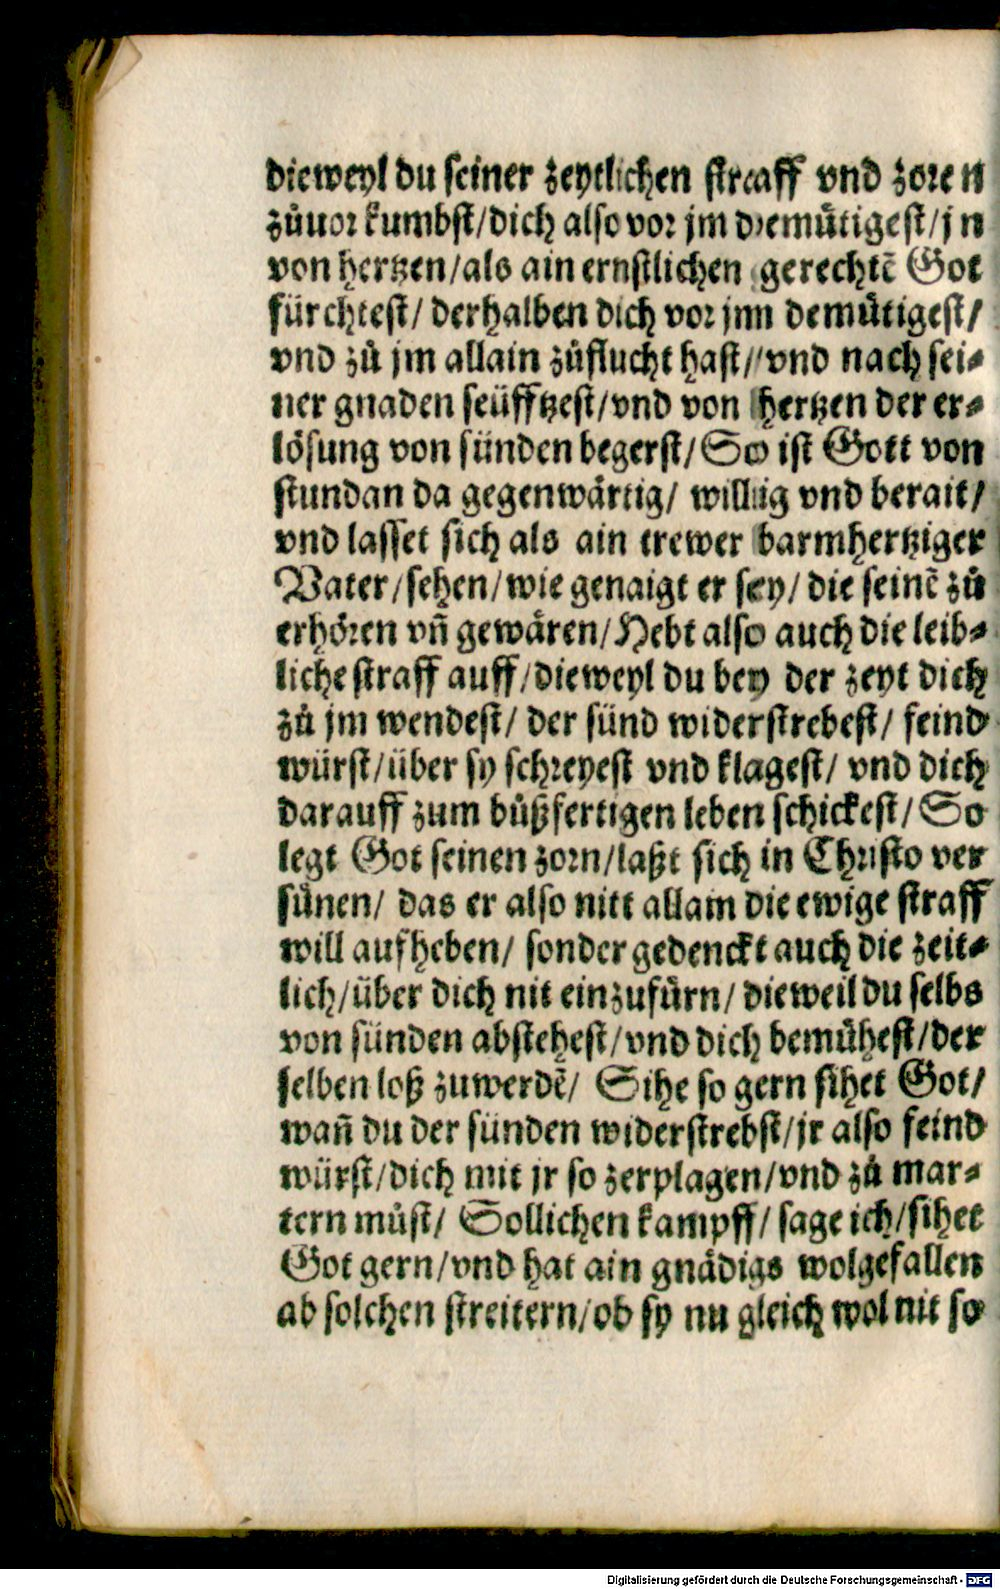 dieweyl du seiner zeytlichen straaff vnd zoren
zůuor kumbst/dich also vor jm diemůtigest/jn
von hertzen/als ain ernstlichen gerechtē Got
fürchtest/ derhalben dich vor jnn demůtigest/
vnd zů jm allain zůflucht hast//vnd nach sei⸗
ner gnaden seüfftzest/vnd von hertzen der er⸗
lösung von sünden begerst/So ist Gott von
stundan da gegenwärtig/ willig vnd berait/
vnd lasset sich als ain trewer barmhertziger
Vater/sehen/wie genaigt er sey/ die seinē zů
erhören vñ gewären/Hebt also auch die leib⸗
liche straff auff/dieweyl du bey der zeyt dich
zů jm wendest/ der sünd widerstrebest/ feind
würst/über sy schreyest vnd klagest/ vnd dich
darauff zum bůßfertigen leben schickest/ So
legt Got seinen zorn/laßt sich in Christo ver
sůnen/ das er also nitt allain die ewige straff
will aufheben/ sonder gedenckt auch die zeit⸗
lich/über dich nit einzufůrn/ dieweil du selbs
von sünden abstehest/vnd dich bemůhest/der
selben loß zuwerdē/ Sihe so gern sihet Got/
wañ du der sünden widerstrebst/jr also feind
würst/dich mit jr so zerplagen/vnd zů mar⸗
tern můst/ Sollichen kampff/ sage ich/sihet
Got gern/vnd hat ain gnädigs wolgefallen
ab solchen streitern/ob sy nu gleich wol nit so
Digitalisierung gefördert durch die Deutsche Forschungsgemeinschaft - DFG